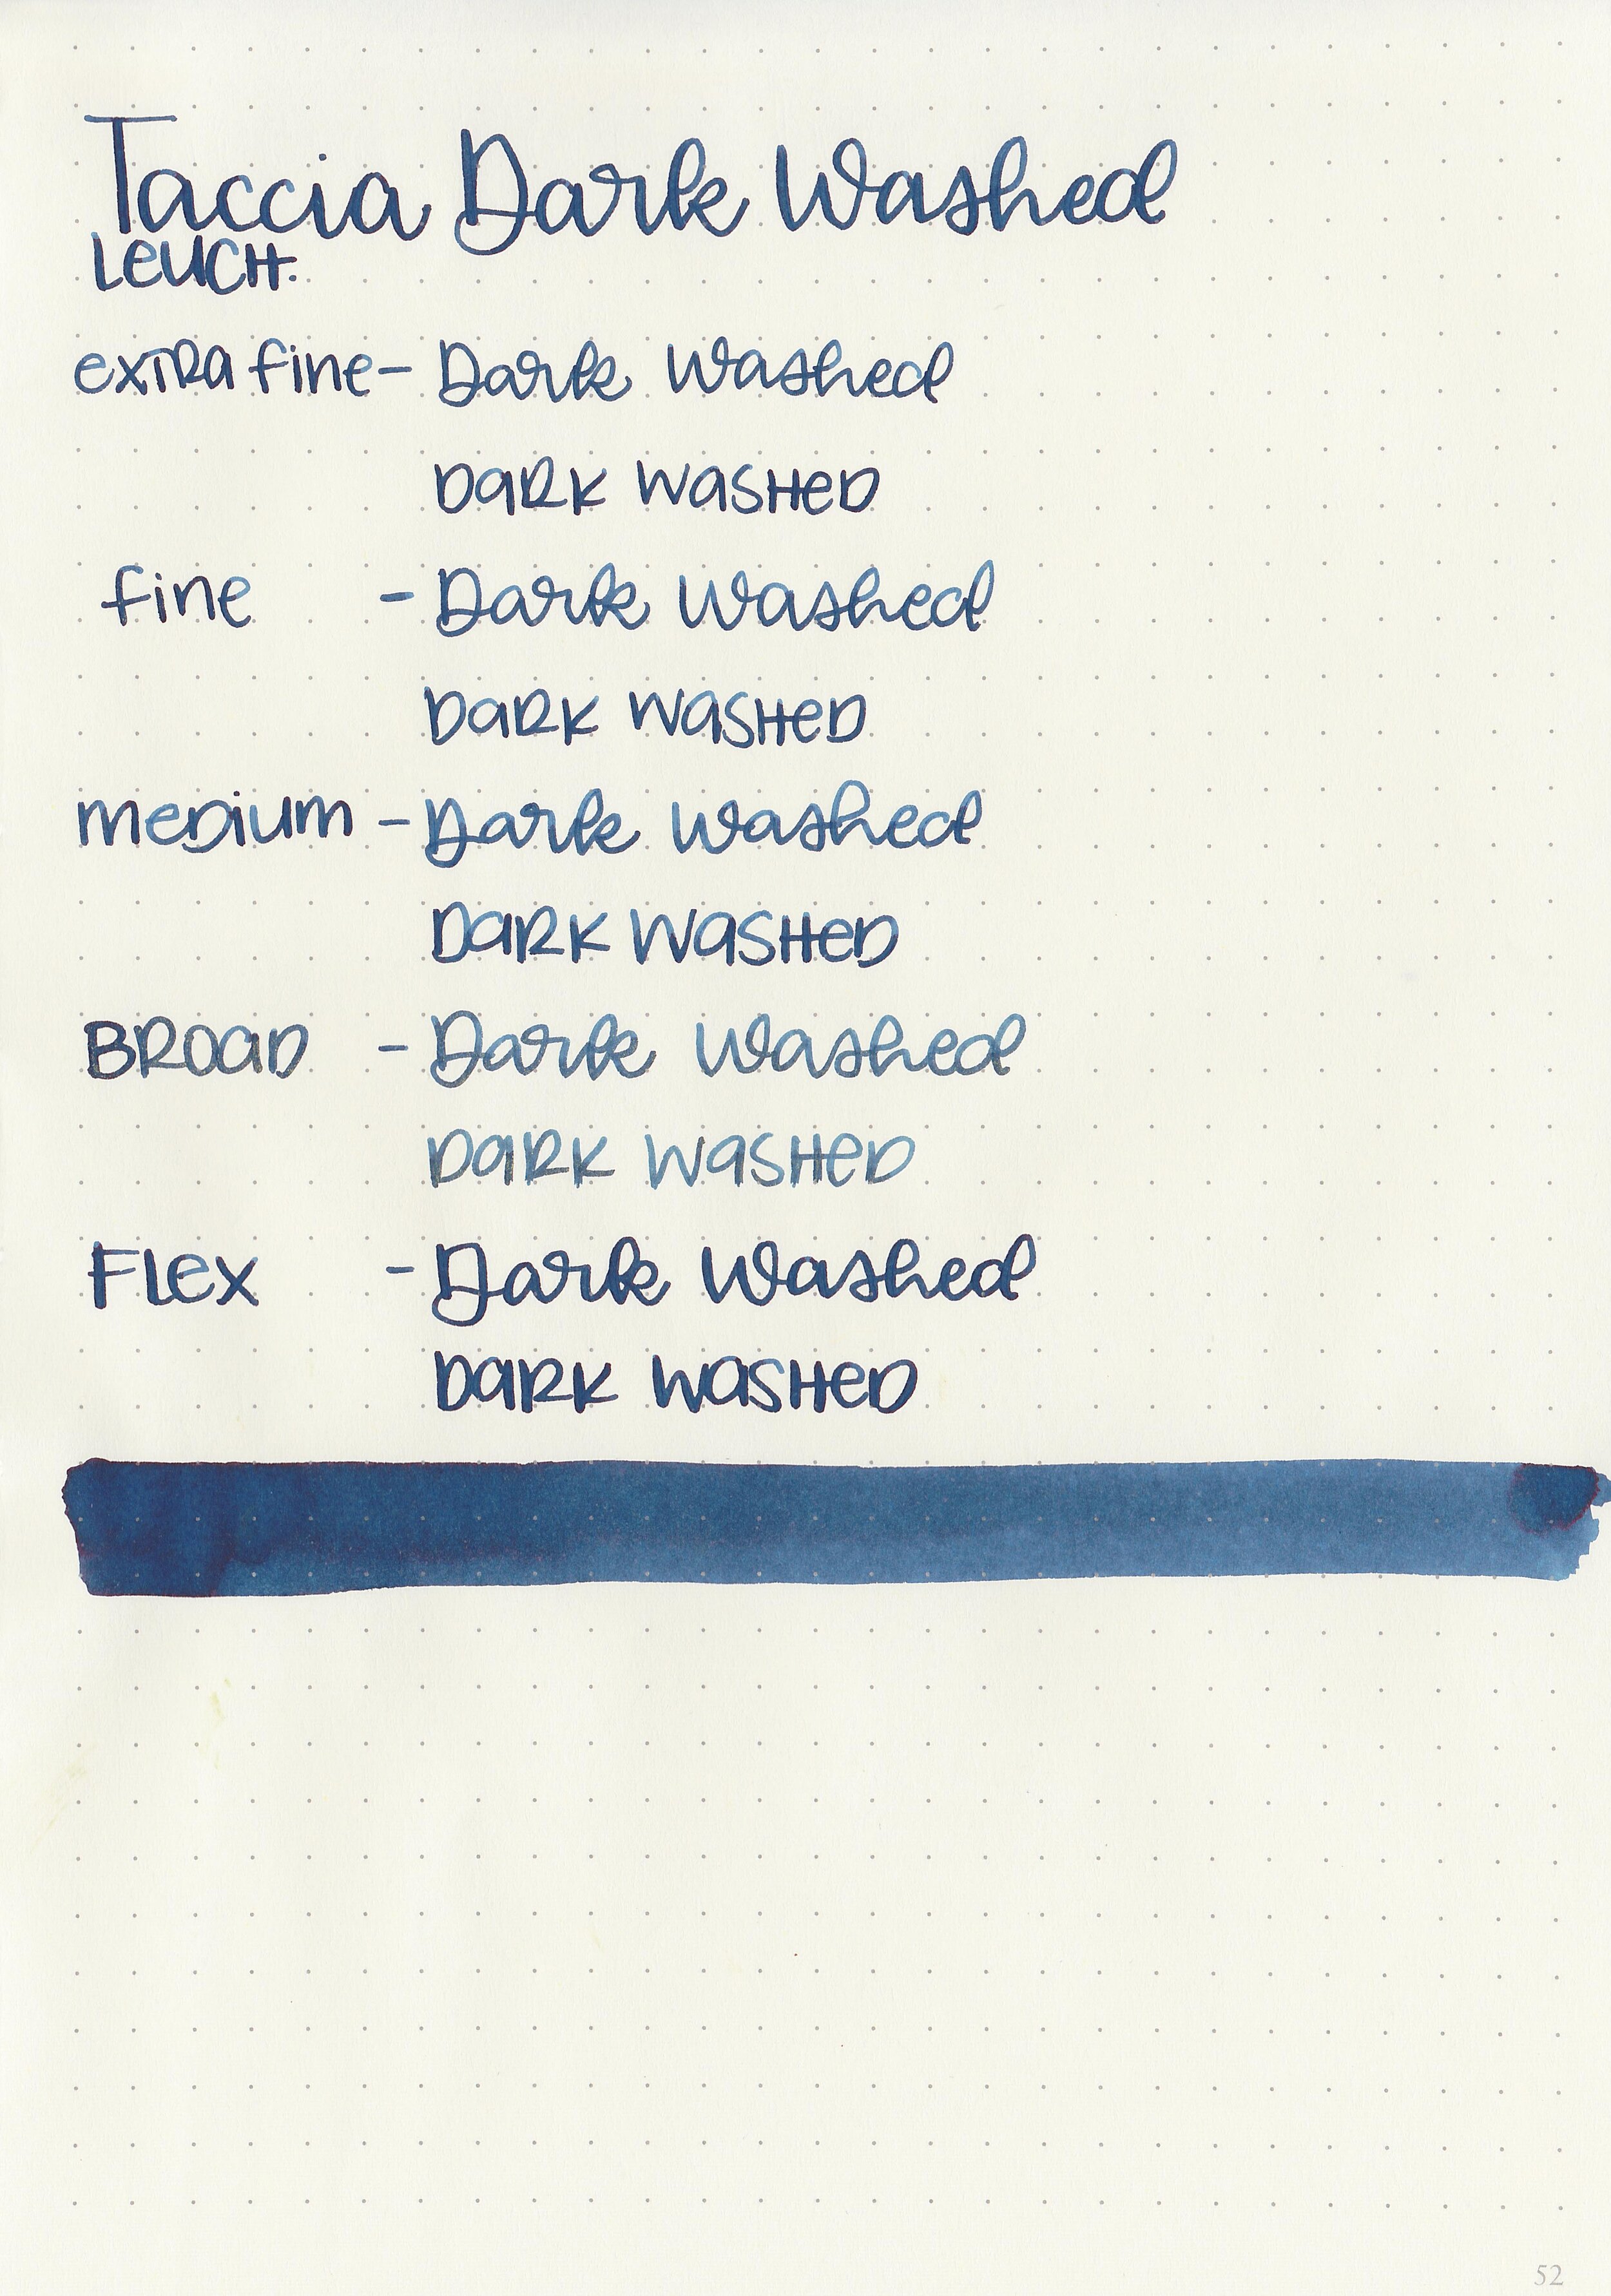 Taccia Dark Washed
Leuch.
extra fine - Dark Washed
Dark Washed
fine - Dark Washed
Dark Washed
medium - Dark Washed
Dark Washed
Broad - Dark Washed
Dark Washed
Flex - Dark Washed
Dark Washed
52